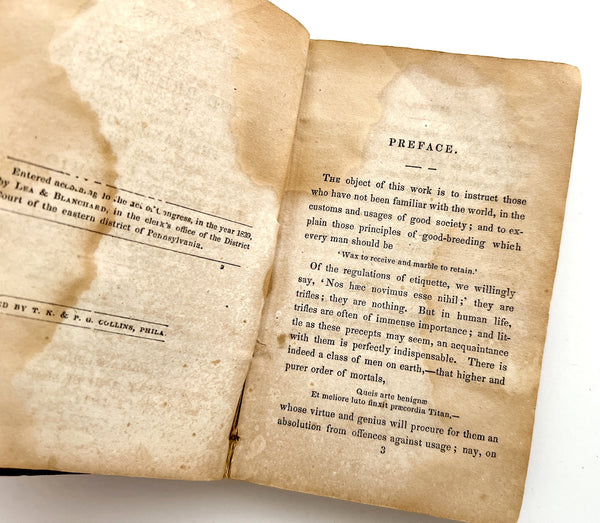 Entered according to the act of Congress, in the year 1839,
by LEA & BLANCHARD, in the clerk's office of the District
Court of the eastern district of Pennsylvania.
2
ED BY T. K. & P. G. COLLINS, PHILA.
PREFACE.
THE object of this work is to instruct those
who have not been familiar with the world, in the
customs and usages of good society; and to ex-
plain those principles of good-breeding which
every man should be
'Wax to receive and marble to retain.'
Of the regulations of etiquette, we willingly
say, 'Nos hæc novimus esse nihil;' they are
trifles; they are nothing. But in human life,
trifles are often of immense importance; and lit-
tle as these precepts may seem, an acquaintance
with them is perfectly indispensable. There is
indeed a class of men on earth,—that higher and
purer order of mortals,
Queis arte benignæ
Et meliore luto finxit præcordia Titan,—
whose virtue and genius will procure for them an
absolution from offences against usage; nay, on
3